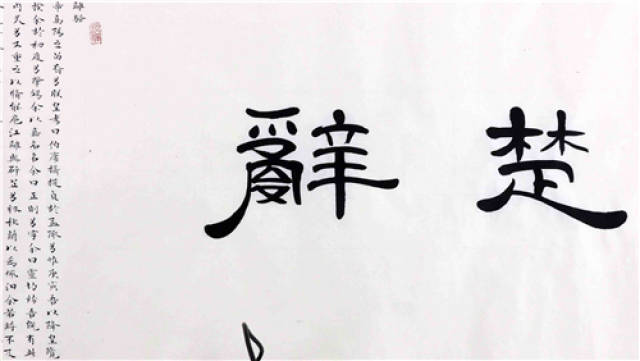 楚辭
離騷
帝高陽之苗裔兮朕皇考曰伯庸攝提貞於孟陬兮惟庚寅吾以降皇覽
揆余於初度兮肇錫余以嘉名名余曰正則兮字余曰靈均紛吾既有此
内美兮又重之以脩能扈江離與辟芷兮紉秋蘭以為佩汨余若將不